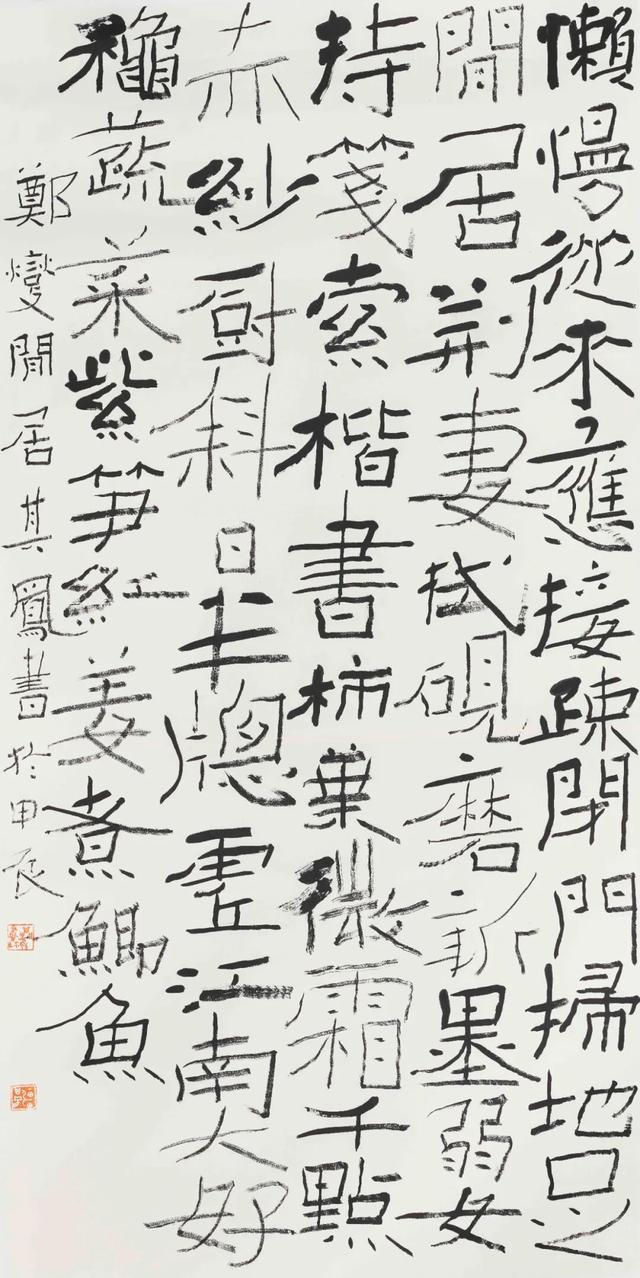 懶慢從來應接疎閉門掃地足
閒居荊妻拭硯磨新墨弱女
持箋索楷書柿葉微霜千點
赤紗厨斜日半牕虛江南大好
穐蔬菜紫笋紅姜煮鯽魚
鄭燮閒居其鳳書於甲辰